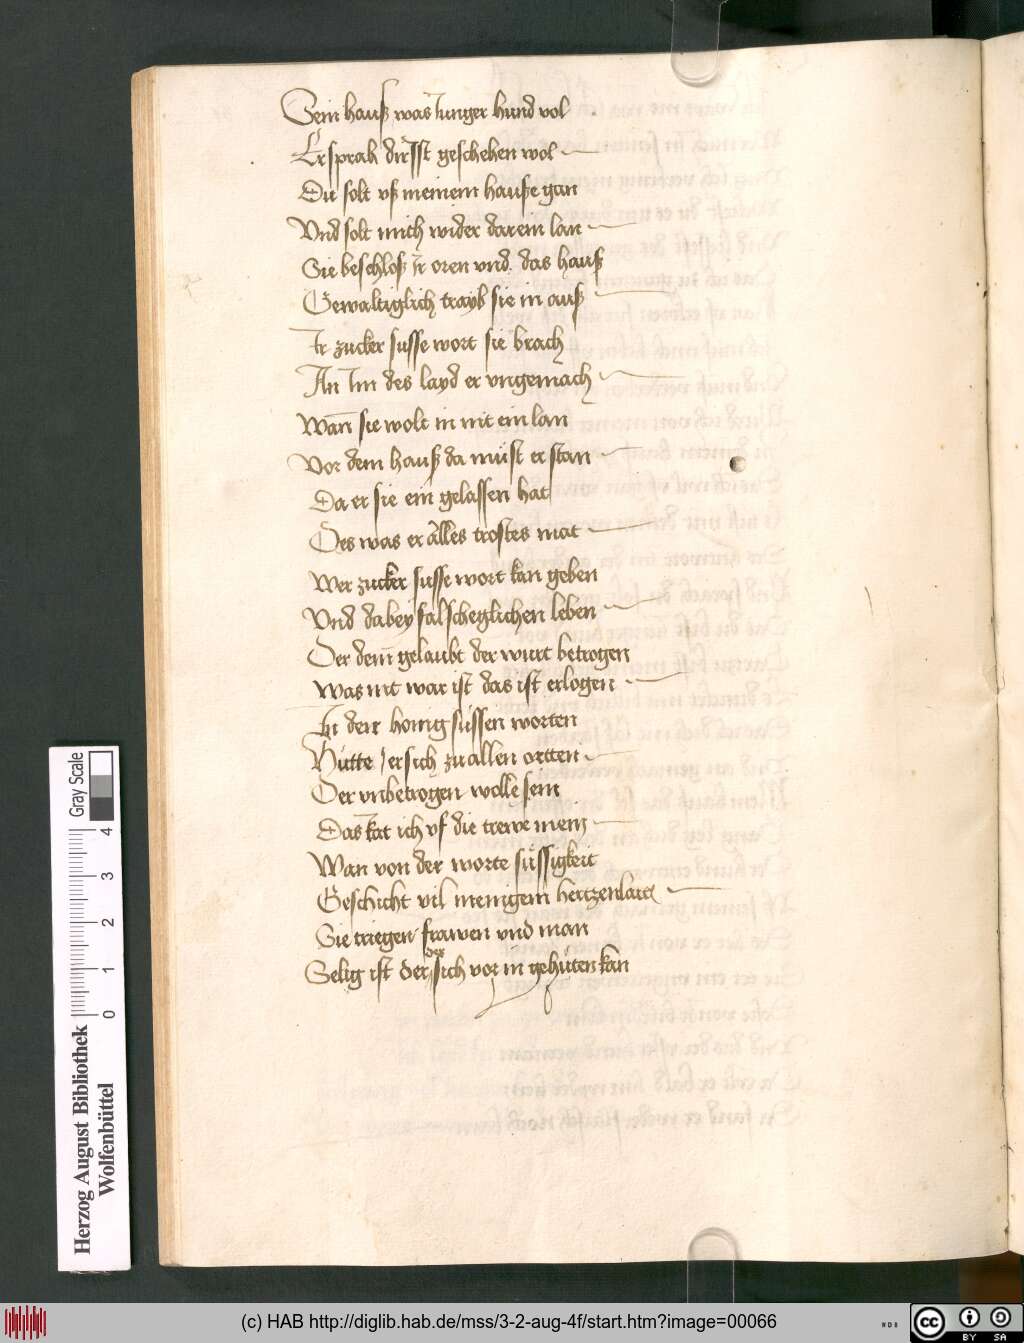 Sein hauß was Iunger hund vol
Er sprach dir Ist geschehen wol
Du solt vß meinem hauße gan
Vnd solt mich wider darein lan
Sie beschloß Ir oren vnd das hauß
Gewaltiglich trayb sie in auß
Ir zucker susse wort sie brach
An Im des layd er vngemach
Wan̄ sie wolt in nit ein lan
Vor dem hauß da müst er stan
Da er sie ein gelassen hat
Des was er alles trostes mat
Wer zucker susse wort kan geben
Vnd dabey falscheglichen leben
Der dem gelaubt der wurt betrogen
Was nit war ist das ist erlogen
In den honig süssen worten
Hütte er sich zu allen ortten
Der vnbetrogen wolle sein
Das Rat ich vf die trewe mein
Wan von der worte süssigkeit
Geschicht vil menigem hertzenlait
Sie triegen frawen vnd man
Selig ist der der sich vor in gehüten kan
Herzog August Bibliothek
Wolfenbüttel
Gray Scale
0 1 2 3 4
(c) HAB http://diglib.hab.de/mss/3-2-aug-4f/start.htm?image=00066
cc BY SA